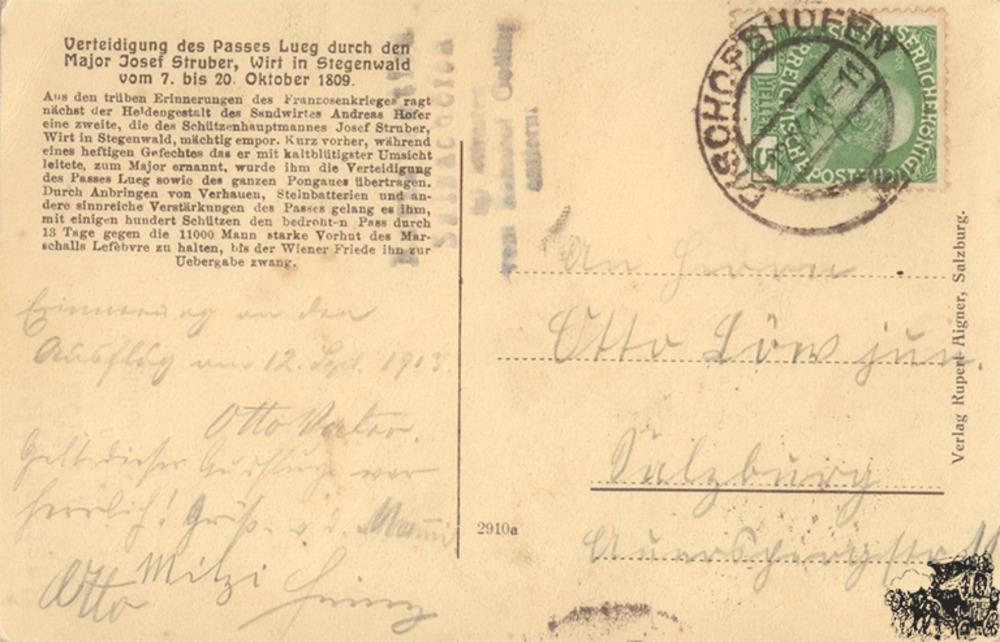 Verteidigung des Passes Lueg durch den
Major Josef Struber, Wirt in Stegenwald
vom 7. bis 20. Oktober 1809.
Aus den trüben Erinnerungen des Franzosenkrieges ragt
nächst der Heldengestalt des Sandwirtes Andreas Hofer
eine zweite, die des Schützenhauptmannes Josef Struber,
Wirt in Stegenwald, mächtig empor. Kurz vorher, während
eines heftigen Gefechtes das er mit kaltblütigster Umsicht
leitete, zum Major ernannt, wurde ihm die Verteidigung
des Passes Lueg sowie des ganzen Pongaues übertragen.
Durch Anbringen von Verhauen, Steinbatterien und an-
dere sinnreiche Verstärkungen des Passes gelang es ihm,
mit einigen hundert Schützen den bedroht-n Pass durch
13 Tage gegen die 11000 Mann starke Vorhut des Mar-
schalls Lefèbvre zu halten, bis der Wiener Friede ihn zur
Uebergabe zwang.
Erinnerung an den
Ausflug am 12. Sept. 1913
Otto Vater.
Gelt dieser Ausflug war
herrlich! Gruß v. d. Mammi
Mitzi
Otto
BISCHOFSHOFEN
5
HELLER
An Herrn
Otto Löw jun.
Salzburg
Auerspergstr.
2910a
Verlag Rupert Aigner, Salzburg.